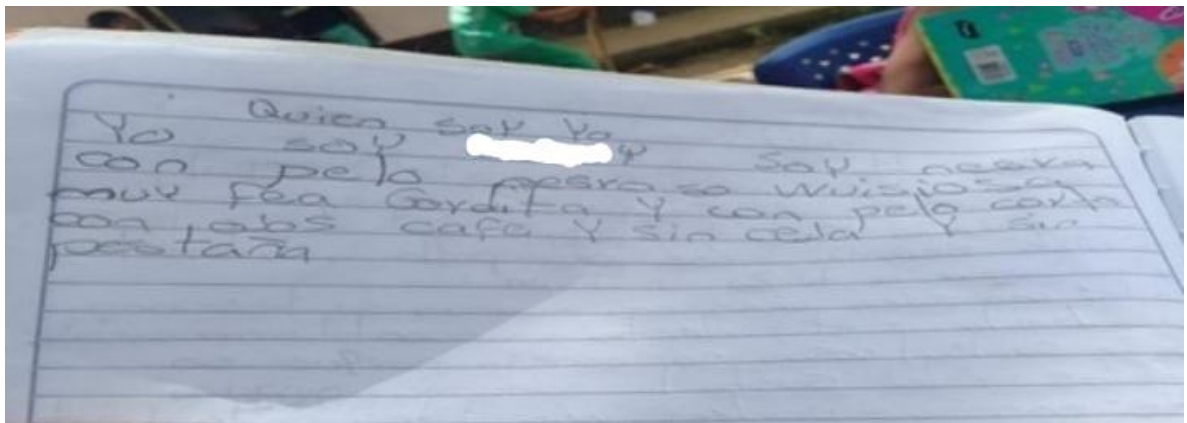 Quien soy Yo
Yo soy y soy negra
con pelo negro so
muy fea Gordita y con pelo corto
con ojos cafe y sin ceja y sin
pestaña